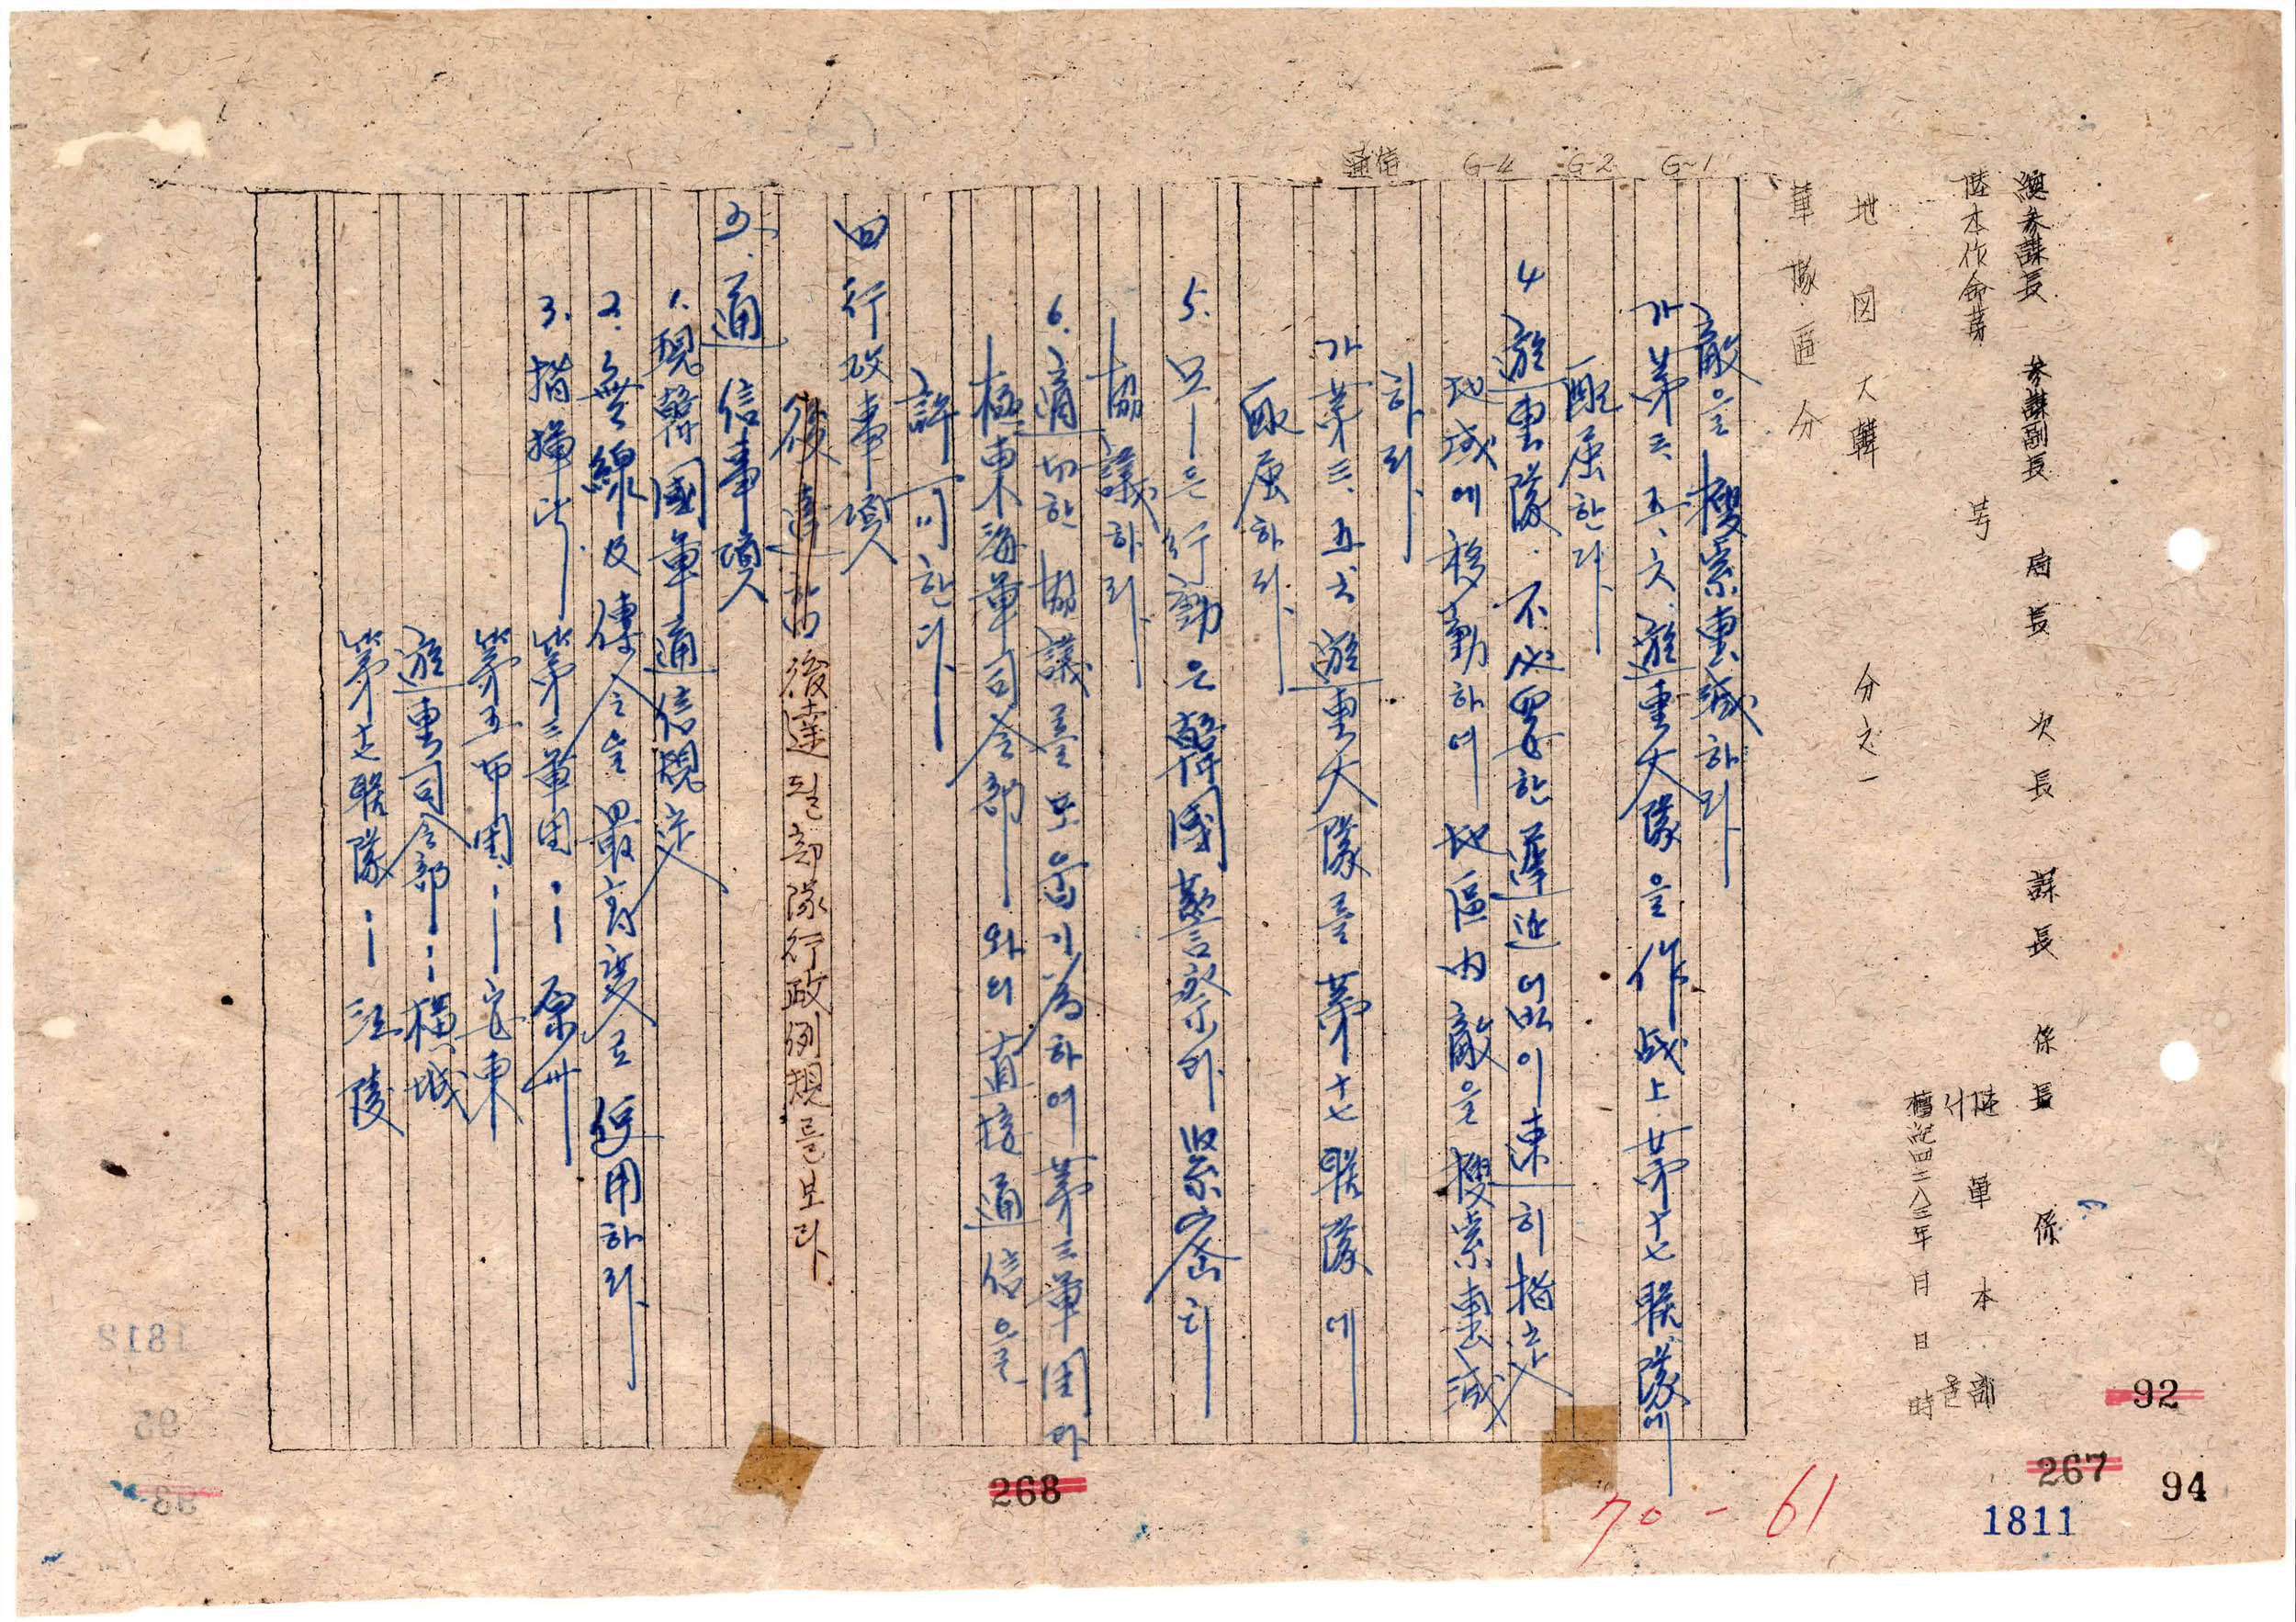 總參謀長 參謀副長 局長 次長 課長 係長 係
陸本作命第 号
陸軍本部
서울
檀紀四二八三年 月 日 時
地図 大韓 分之一
軍隊區分
G-1 G-2 G-4 通信
敵을 搜索 擊滅하라
가 第三、五、六 遊擊大隊을 作战上 第十七聯隊에
配屬한다
4 遊擊隊 不必要한 遲延 없이 速히 指定
地域에 移動하여 地區内 敵을 搜索 擊滅
하라
가 第三、五、六 遊擊大隊를 第十七聯隊에
配屬하라
5. 모ー든 行動은 韓國警察과 緊密히
協議하라
6. 適切한 協議를 도읍기 爲하여 第三軍団과
極東海軍司令部와의 直接 通信을
許可한다
四 行政事項
後達함 後達될 部隊行政例規를 보라
五、通信事項
1. 現 韓國軍 通信規定
2. 無線 及 傳令을 最高度로 使用하라
3. 指揮所 第三軍団 : ー 原州
第五师団 : ー 安東
遊擊司令部 : ー 橫城
第七聯隊 : ー 江陵
92
267
94
1811
268
70-61
1812
95
93